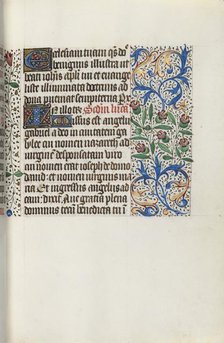 Ecclesiam tuam qs do
benignus illustra ut
beati iohis apli tui et euange
liste illuminata doctrinis ad
dona perueniat sempiterna Pr
In illo tpr. Scdm lucā
Missus est angelus
gabriel a deo in ciuitatem ga
lylee cui nomen nazareth ad
uirginē desponsatam uiro
cui nomen erat ioseph de domo
dauid: et nomen uirginis ma
ria Et ingressus angelus ad
eam: dixit. Aue gratia plena
dominus tecū benedicta tu ī